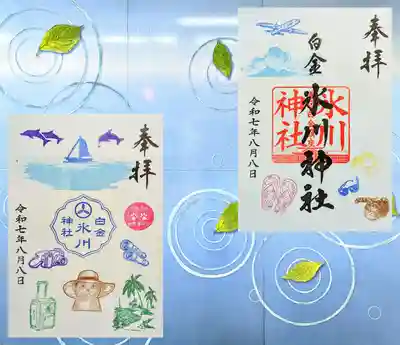 奉拝
白金
氷川神社
氷川
神社
令和七年八月八日
奉拝
白金
氷川
神社
令和七年八月八日